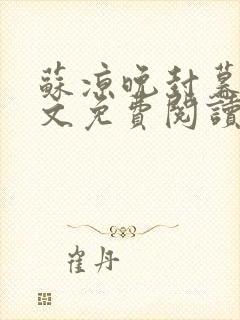 蘇涼晚封幕
文免費閱讀
崔丹